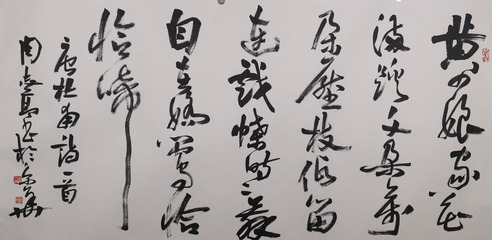 黄四娘家花
满蹊千朵万
朵压枝低留
连戏蝶时々舞
自在娇莺恰
恰啼
唐杜甫诗一首
周